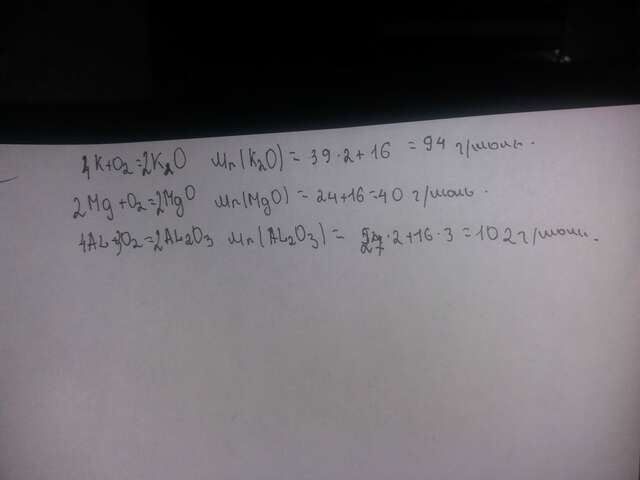 4K+O₂=2K₂O Mr(K₂O)=39·2+16=94 г/моль.
2Mg+O₂=2MgO Mr(MgO)=24+16=40 г/моль.
4AL+3O₂=2AL₂O₃ Mr(AL₂O₃)=27·2+16·3=102 г/моль.